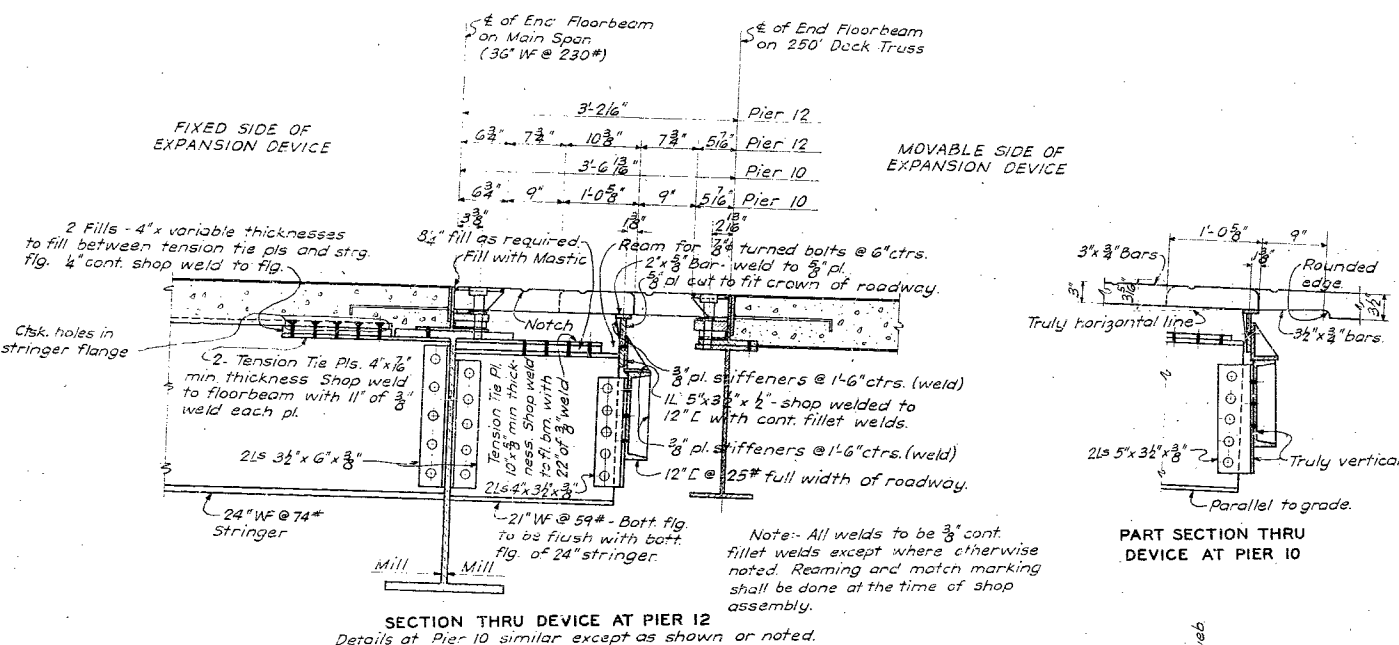 ℄ of End Floorbeam
on Main Span
(36" WF @ 230#)
℄ of End Floorbeam
on 250' Deck Truss
FIXED SIDE OF
EXPANSION DEVICE
MOVABLE SIDE OF
EXPANSION DEVICE
3'-2 1/16" Pier 12
6 3/4" 7 3/4" 10 3/8" 7 3/4" 5 7/16" Pier 12
3'-6 13/16" Pier 10
6 3/4" 9" 1'-0 5/8" 9" 5 7/16" Pier 10
3 3/8" 1 3/8" 2 13/16"
2 Fills - 4" x variable thicknesses
to fill between tension tie pls and strg.
flg. 1/4" cont. shop weld to flg.
fill as required.
Fill with Mastic
Ream for 7/8"φ turned bolts @ 6" ctrs.
2" x 5/8" Bar - weld to 5/8" pl.
5/8" pl cut to fit crown of roadway.
Notch
Ctsk. holes in
stringer flange
2 - Tension Tie Pls. 4" x 7/16"
min. thickness Shop weld
to floorbeam with 11" of 3/8"
weld each pl.
Tension Tie Pl.
10" x 5/8" min thick-
ness. Shop weld
to fl. bm. with
22" of 3/8" weld
3/8" pl. stiffeners @ 1'-6" ctrs. (weld)
1L 5" x 3 1/2" x 1/2" - shop welded to
12" [ with cont. fillet welds.
3/8" pl. stiffeners @ 1'-6" ctrs. (weld)
12" [ @ 25# full width of roadway.
2Ls 3 1/2" x 6" x 3/8"
2Ls 4" x 3 1/2" x 3/8"
24" WF @ 74#
Stringer
21" WF @ 59# - Bott. flg.
to be flush with bott.
flg. of 24" stringer.
Mill Mill
Note:- All welds to be 3/8" cont.
fillet welds except where otherwise
noted. Reaming and match marking
shall be done at the time of shop
assembly.
SECTION THRU DEVICE AT PIER 12
Details at Pier 10 similar except as shown or noted.
1'-0 5/8" 9"
3" x 3/4" Bars
Rounded
edge.
3"
3 1/2"
Truly horizontal line
3 1/2" x 3/4" bars.
2Ls 5" x 3 1/2" x 3/8"
Truly vertical
Parallel to grade.
PART SECTION THRU
DEVICE AT PIER 10
web.